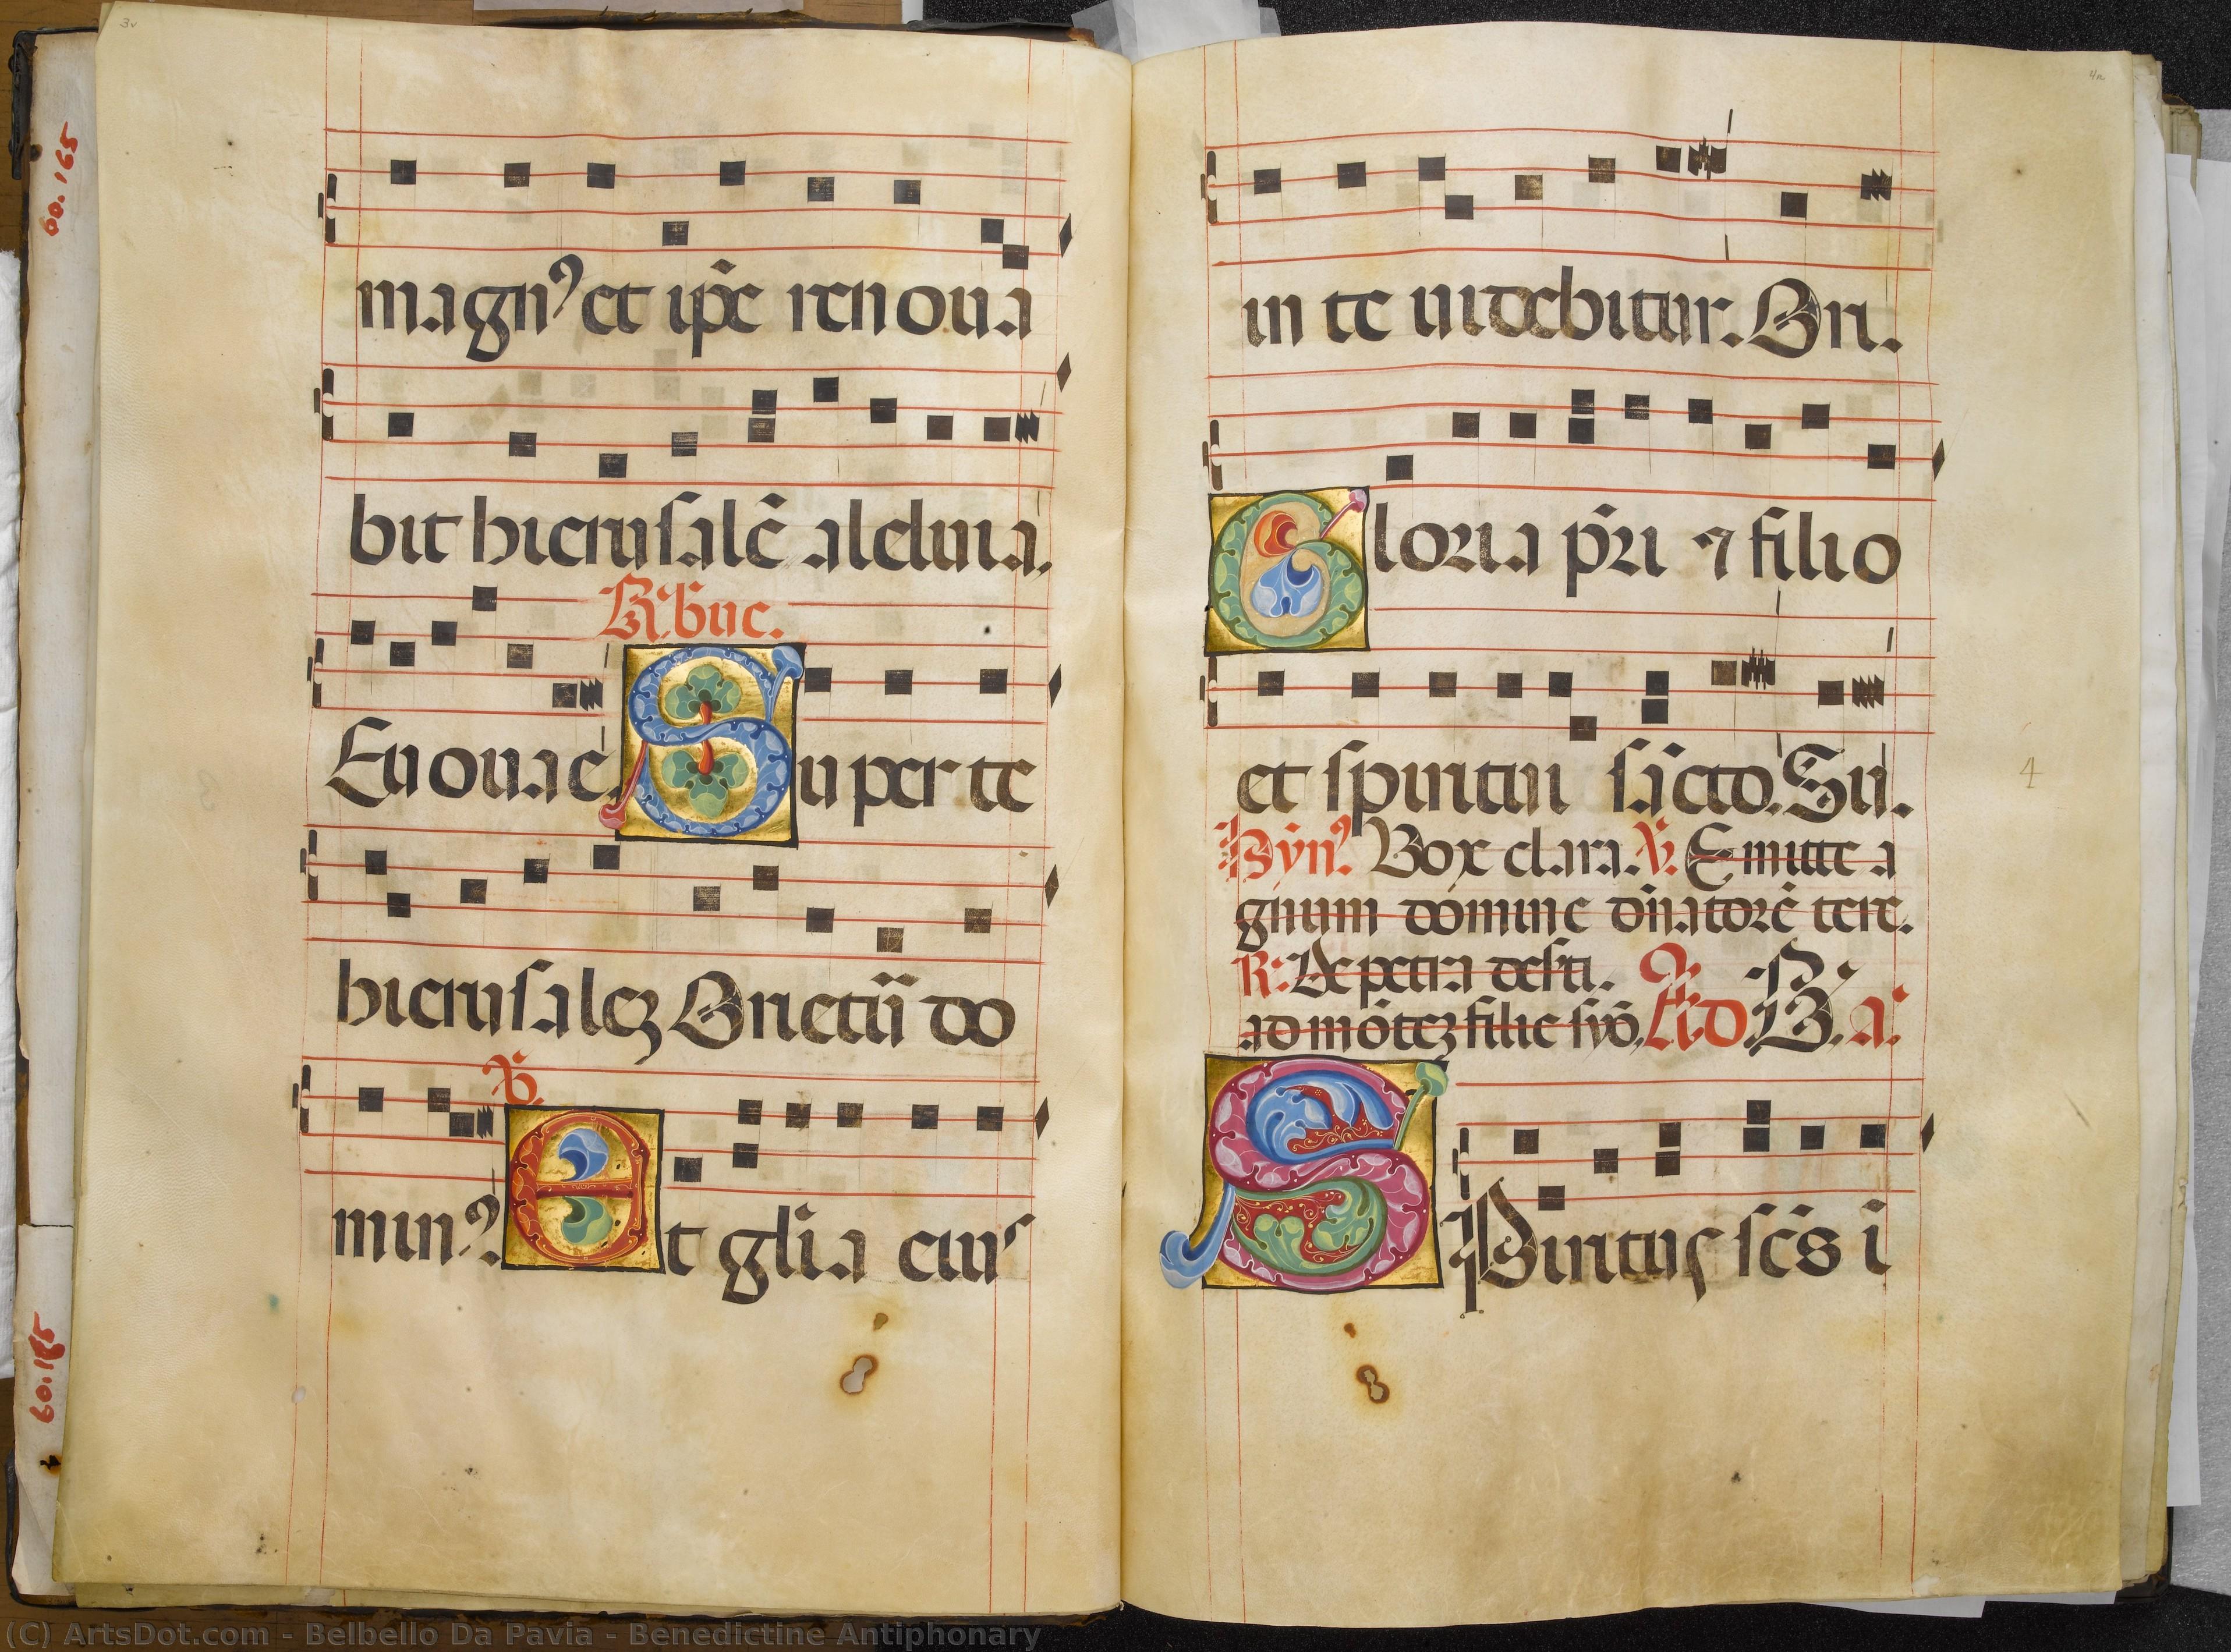 3v
60.165
magn⁹ et ip̄e renoua
bit hierusalē aleluia.
R̃. bŕue.
Euouae. Super te
hierusalez Orietū do
min⁹. ꝟ. Et glīa eius
60.165
4r
in te uidebitur. Ori.
Gloria pr̄i ⁊ filio
et spiritui sācto. Su.
4
Hyn̄⁹. Vox clara. ꝟ. Emitte a
gnum domine dn̄atorē terre.
R̃. De petra deserti.
ad mōtez filie syō.
SPiritus sc̄s i
(C) ArtsDot.com - Belbello Da Pavia - Benedictine Antiphonary